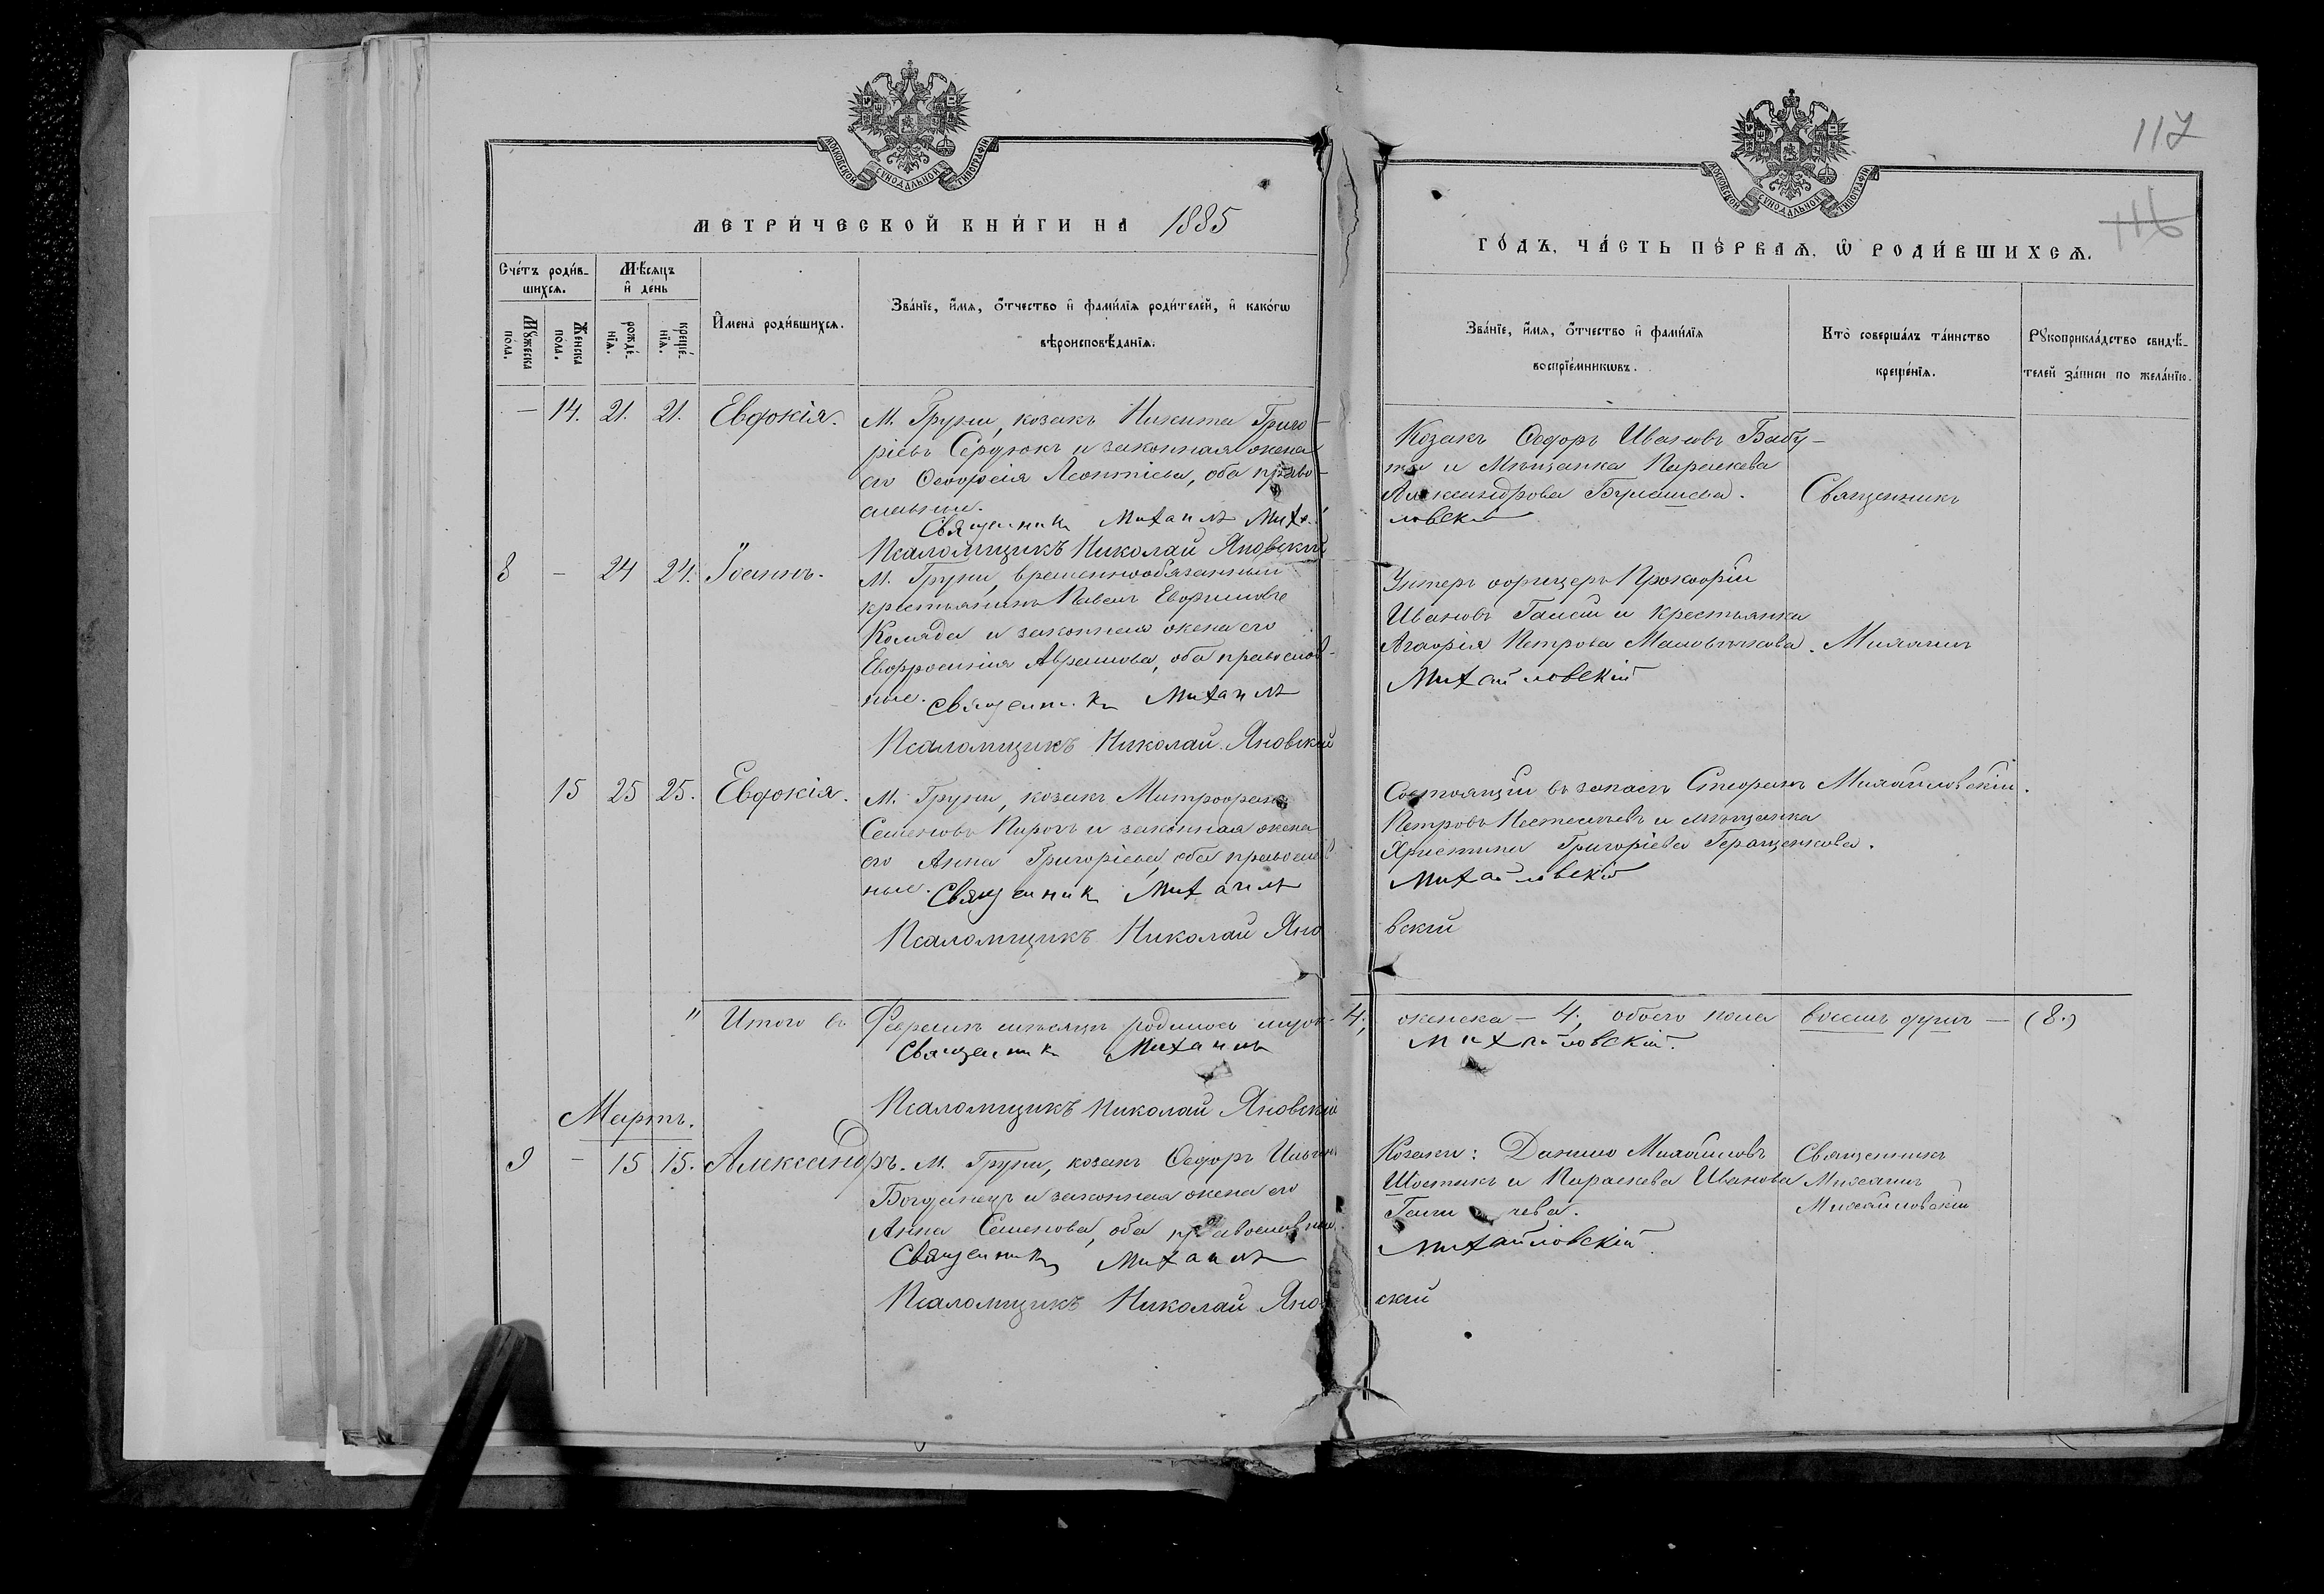 МОСКОВСКОЙ СУНОДАЛЬНОЙ ТИПОГРАФІИ
МЕТРИ́ЧЕСКОЙ КНИ́ГИ НА 1885
Сче́тъ роди́в-
шихсѧ.
Мѣ́сѧцъ
и҆ день
Мꙋ́жеска
по́ла.
Же́нска
по́ла.
рожде́-
нїѧ.
креще́-
нїѧ.
И҆мена̀ роди́вшихсѧ.
Зва́нїе, и҆́мѧ, ѻ҆́тчество и҆ фами́лїѧ роди́телей, и҆ како́гѡ
вѣроисповѣ́данїѧ.
— 14. 21. 21. Евдокія.
М. Груни, козакъ Никита Григо-
ріевъ Сердюкъ и законная жена
его Ѳеодосія Леонтіева, оба право-
славные.
Священникъ Михаилъ Миха
Псаломщикъ Николай Яновскій
8 — 24 24. Іоаннъ.
М. Груни, временнообязанный
крестьянинъ Павелъ Евфимовъ
Коляда и законная жена его
Евфросинія Аврамова, оба православ-
ные. Священникъ Михаилъ
Псаломщикъ Николай Яновскій
15 25 25. Евдокія.
М. Груни, козакъ Митрофанъ
Семеновъ Пирогъ и законная жена
его Анна Григоріева, оба православ
ные. Священникъ Михаилъ
Псаломщикъ Николай Яно
" Итого въ Февралѣ мѣсяцѣ родилось муж- 4;
Священникъ Михаилъ
Псаломщикъ Николай Яновскій
Мартъ.
9 — 15 15. Александръ.
М. Груни, козакъ Ѳедоръ Ильинъ
Богданецъ и законная жена его
Анна Семенова, оба православные.
Священникъ Михаилъ
Псаломщикъ Николай Яно
117
116
МОСКОВСКОЙ СУНОДАЛЬНОЙ ТИПОГРАФІИ
ГО́ДЪ, ЧА́СТЬ ПЕ́РВАѦ, Ѡ҆ РОДИ́ВШИХСѦ.
Зва́нїе, и҆́мѧ, ѻ҆́тчество и҆ фами́лїѧ
воспрїе́мникѡвъ.
Кто̀ соверша́лъ та́инство
креще́нїѧ.
Рꙋкоприкла́дство свидѣ́-
телей за́писи по жела́нїю.
Козакъ Ѳедоръ Ивановъ Бабу-
та и Мѣщанка Параскева
Александрова Бумашева.
Священникъ
ловскій
Унтеръ офицеръ Прокофій
Ивановъ Галай и крестьянка
Агафія Петрова Маловичкова. Михаилъ
Михайловскій
Состоящій въ запасѣ Стефанъ Михайловскій.
Петровъ и мѣщанка
Христина Григоріева Геращенкова.
Михайловскій
вскій
женска — 4; обоего пола восемь душъ — (8.)
Михайловскій.
Козаки: Данило Михайловъ
Шостакъ и Параскева Иванова
Священникъ
Михаилъ
Михайловскій
Михайловскій
скій